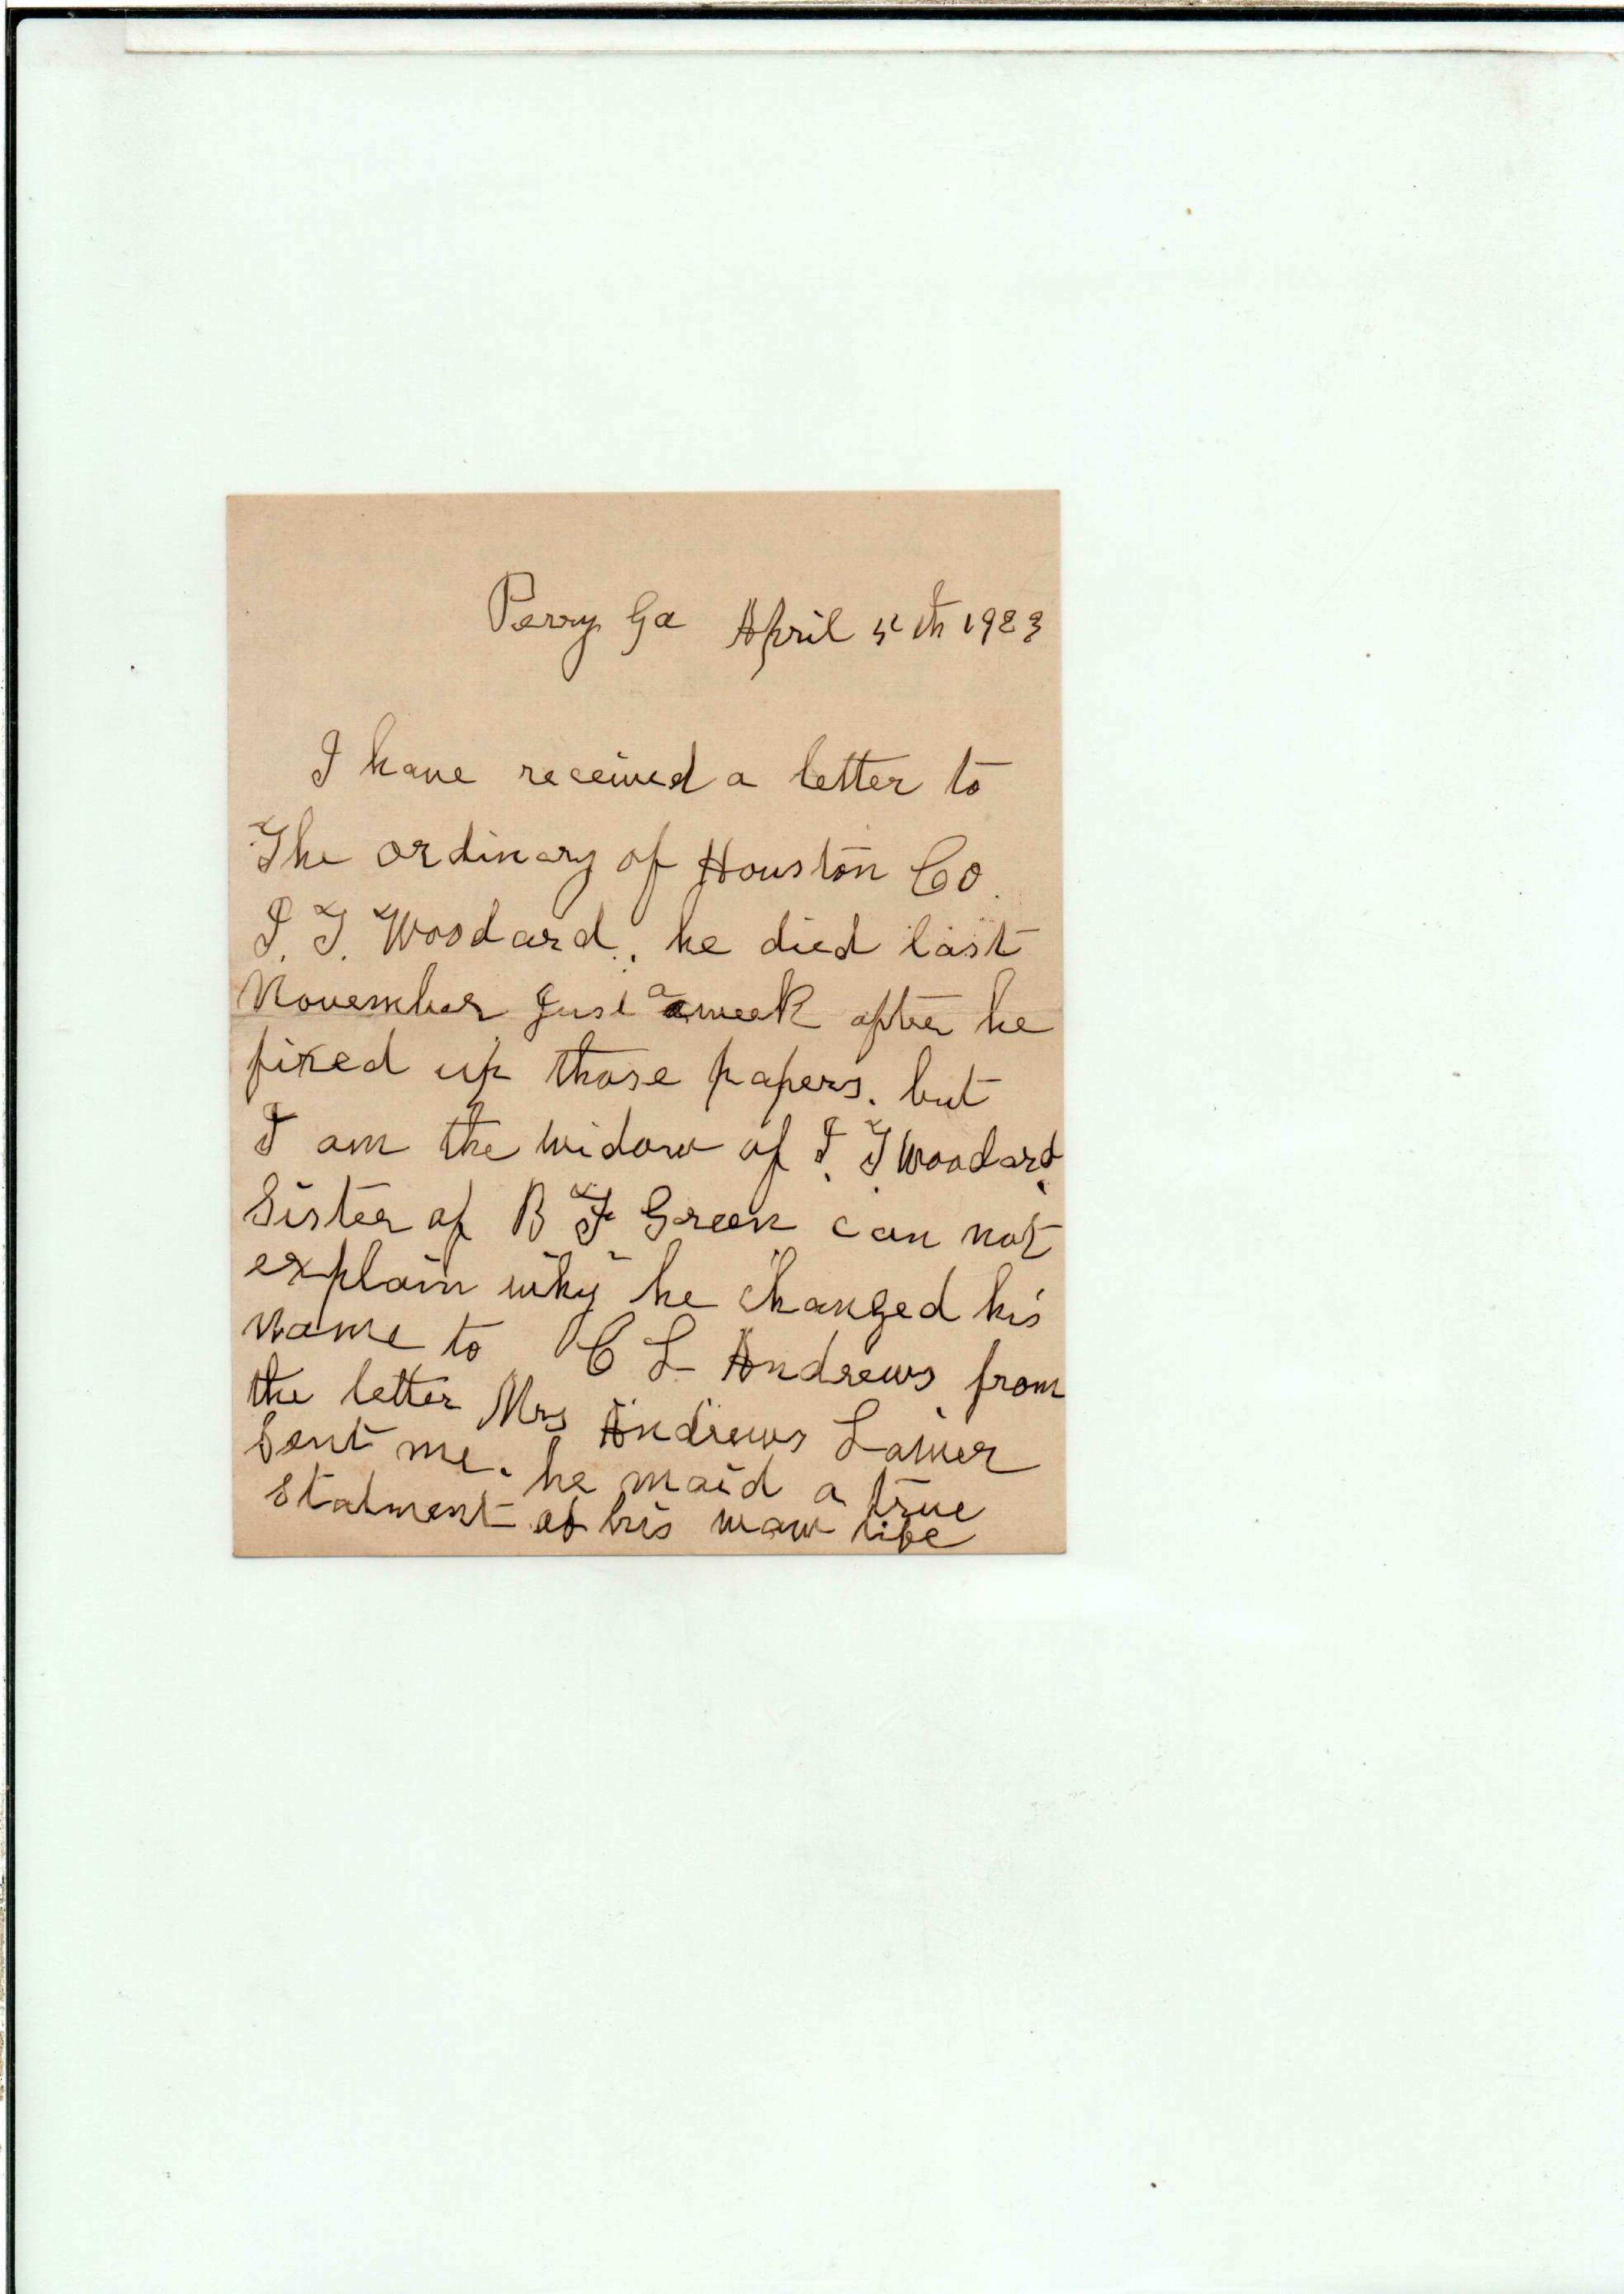 Perry Ga April 5th 1923
I have received a letter to
The ordinary of Houston Co.
J. T. Woodard. he died last
November Just a week after he
fixed up those papers. but
I am the widow of J. T Woodard.
Sister of B F Green can not
explain why he changed his
name to C L Andrews, from
the letter Mrs Andrews Lawer
Sent me. he maid a true
Statment of his waw life